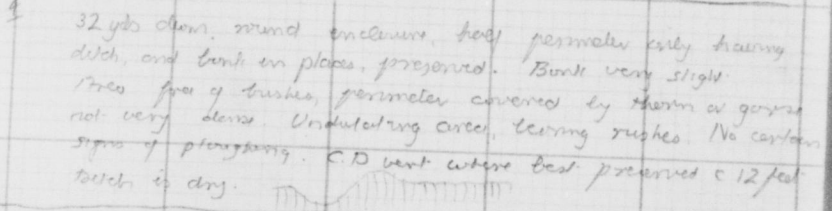 9
32 yds diam, round enclosure, half perimeter only having
ditch, and bank in places, preserved. Bank very slight.
Area free of bushes, perimeter covered by thorn or gorse
not very dense. Undulating area, rushes. No certain
signs of ploughing. C.D vert where best preserved c 12 feet
Ditch is dry.